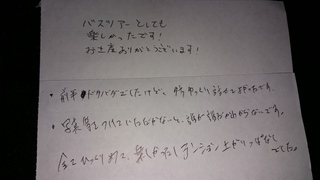 バスツアーとしても
楽しかったです!
お土産ありがとうございます!
・前半ドタバタでしたけど、
・写真等をつけていただかないと、誰が誰だか分からないです。
全てひっくるめて、楽しかったしテンション上がりっぱなし
でした。